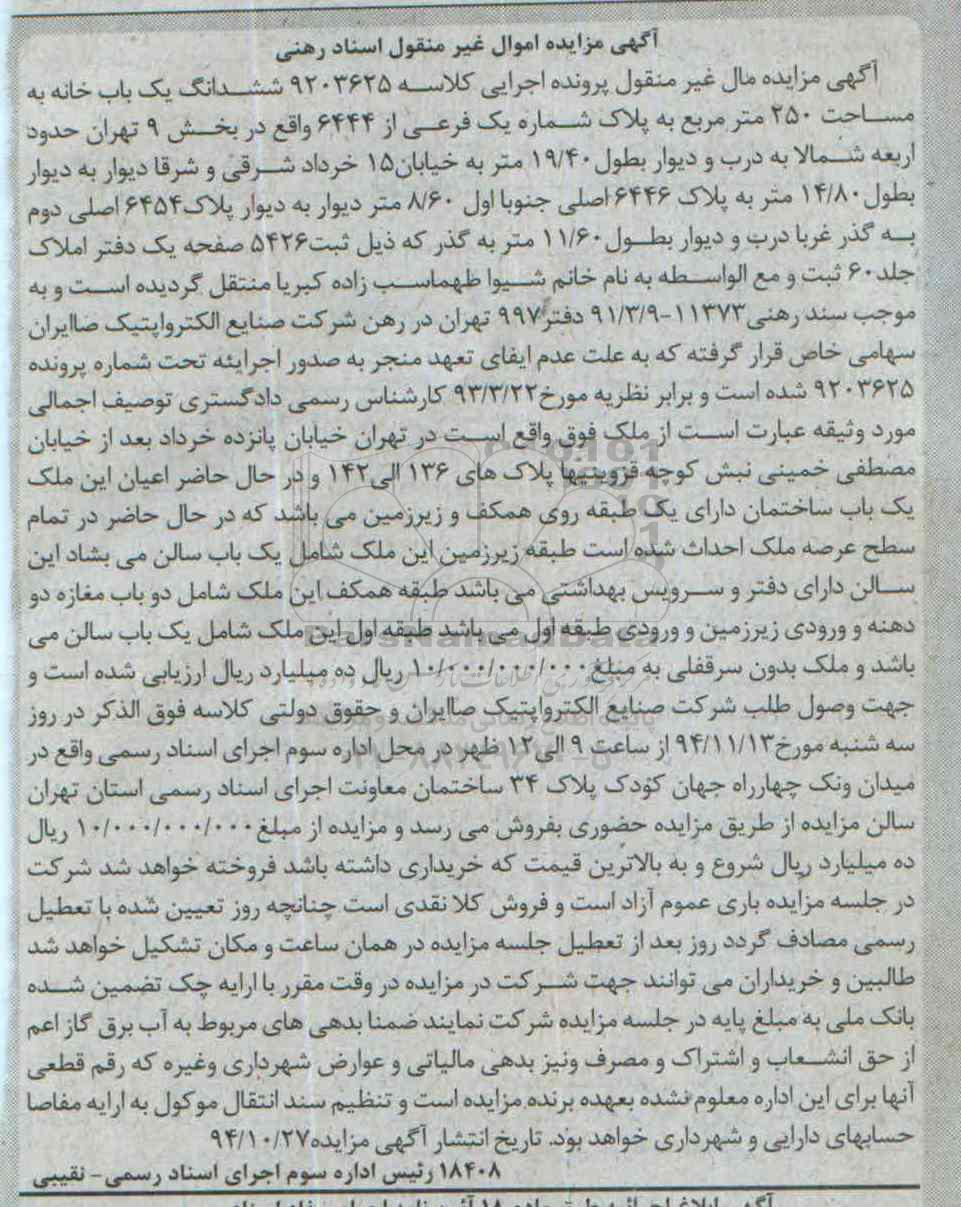 آگهی مزایده اموال غیر منقول اسناد رهنی
آگهی مزایده مال غیر منقول پرونده اجرایی کلاسه ۹۲۰۳۶۲۵ ششدانگ یک باب خانه به
مساحت ۲۵۰ متر مربع به پلاک شماره یک فرعی از ۶۴۴۴ واقع در بخش ۹ تهران حدود
اربعه شمالا به درب و دیوار بطول۱۹/۴۰ متر به خیابان۱۵ خرداد شرقی و شرقا دیوار به دیوار
بطول۱۴/۸۰ متر به پلاک ۶۴۴۶ اصلی جنوبا اول ۸/۶۰ متر دیوار به دیوار پلاک۶۴۵۴ اصلی دوم
به گذر غربا درب و دیوار بطول۱۱/۶۰ متر به گذر که ذیل ثبت۵۴۲۶ صفحه یک دفتر املاک
جلد۶۰ ثبت و مع الواسطه به نام خانم شیوا طهماسب زاده کبریا منتقل گردیده است و به
موجب سند رهنی۱۱۳۷۳-۹۱/۳/۹ دفتر۹۹۷ تهران در رهن شرکت صنایع الکترواپتیک صاایران
سهامی خاص قرار گرفته که به علت عدم ایفای تعهد منجر به صدور اجرایئه تحت شماره پرونده
۹۲۰۳۶۲۵ شده است و برابر نظریه مورخ۹۳/۳/۲۲ کارشناس رسمی دادگستری توصیف اجمالی
مورد وثیقه عبارت است از ملک فوق واقع است در تهران خیابان پانزده خرداد بعد از خیابان
مصطفی خمینی نبش کوچه قزوینیها پلاک های ۱۳۶ الی۱۴۲ و در حال حاضر اعیان این ملک
یک باب ساختمان دارای یک طبقه روی همکف و زیرزمین می باشد که در حال حاضر در تمام
سطح عرصه ملک احداث شده است طبقه زیرزمین این ملک شامل یک باب سالن می بشاد این
سالن دارای دفتر و سرویس بهداشتی می باشد طبقه همکف این ملک شامل دو باب مغازه دو
دهنه و ورودی زیرزمین و ورودی طبقه اول می باشد طبقه اول این ملک شامل یک باب سالن می
باشد و ملک بدون سرقفلی به مبلغ۱۰/۰۰۰/۰۰۰/۰۰۰ ریال ده میلیارد ریال ارزیابی شده است و
جهت وصول طلب شرکت صنایع الکترواپتیک صاایران و حقوق دولتی کلاسه فوق الذکر در روز
سه شنبه مورخ۹۴/۱۱/۱۳ از ساعت ۹ الی۱۲ ظهر در محل اداره سوم اجرای اسناد رسمی واقع در
میدان ونک چهارراه جهان کودک پلاک ۳۴ ساختمان معاونت اجرای اسناد رسمی استان تهران
سالن مزایده از طریق مزایده حضوری بفروش می رسد و مزایده از مبلغ۱۰/۰۰۰/۰۰۰/۰۰۰ ریال
ده میلیارد ریال شروع و به بالاترین قیمت که خریداری داشته باشد فروخته خواهد شد شرکت
در جلسه مزایده باری عموم آزاد است و فروش کلا نقدی است چنانچه روز تعیین شده با تعطیل
رسمی مصادف گردد روز بعد از تعطیل جلسه مزایده در همان ساعت و مکان تشکیل خواهد شد
طالبین و خریداران می توانند جهت شرکت در مزایده در وقت مقرر با ارایه چک تضمین شده
بانک ملی به مبلغ پایه در جلسه مزایده شرکت نمایند ضمنا بدهی های مربوط به آب برق گاز اعم
از حق انشعاب و اشتراک و مصرف ونیز بدهی مالیاتی و عوارض شهرداری وغیره که رقم قطعی
آنها برای این اداره معلوم نشده بعهده برنده مزایده است و تنظیم سند انتقال موکول به ارایه مفاصا
حسابهای دارایی و شهرداری خواهد بود. تاریخ انتشار آگهی مزایده۹۴/۱۰/۲۷
۱۸۴۰۸ رئیس اداره سوم اجرای اسناد رسمی- نقیبی
ParsNamadData